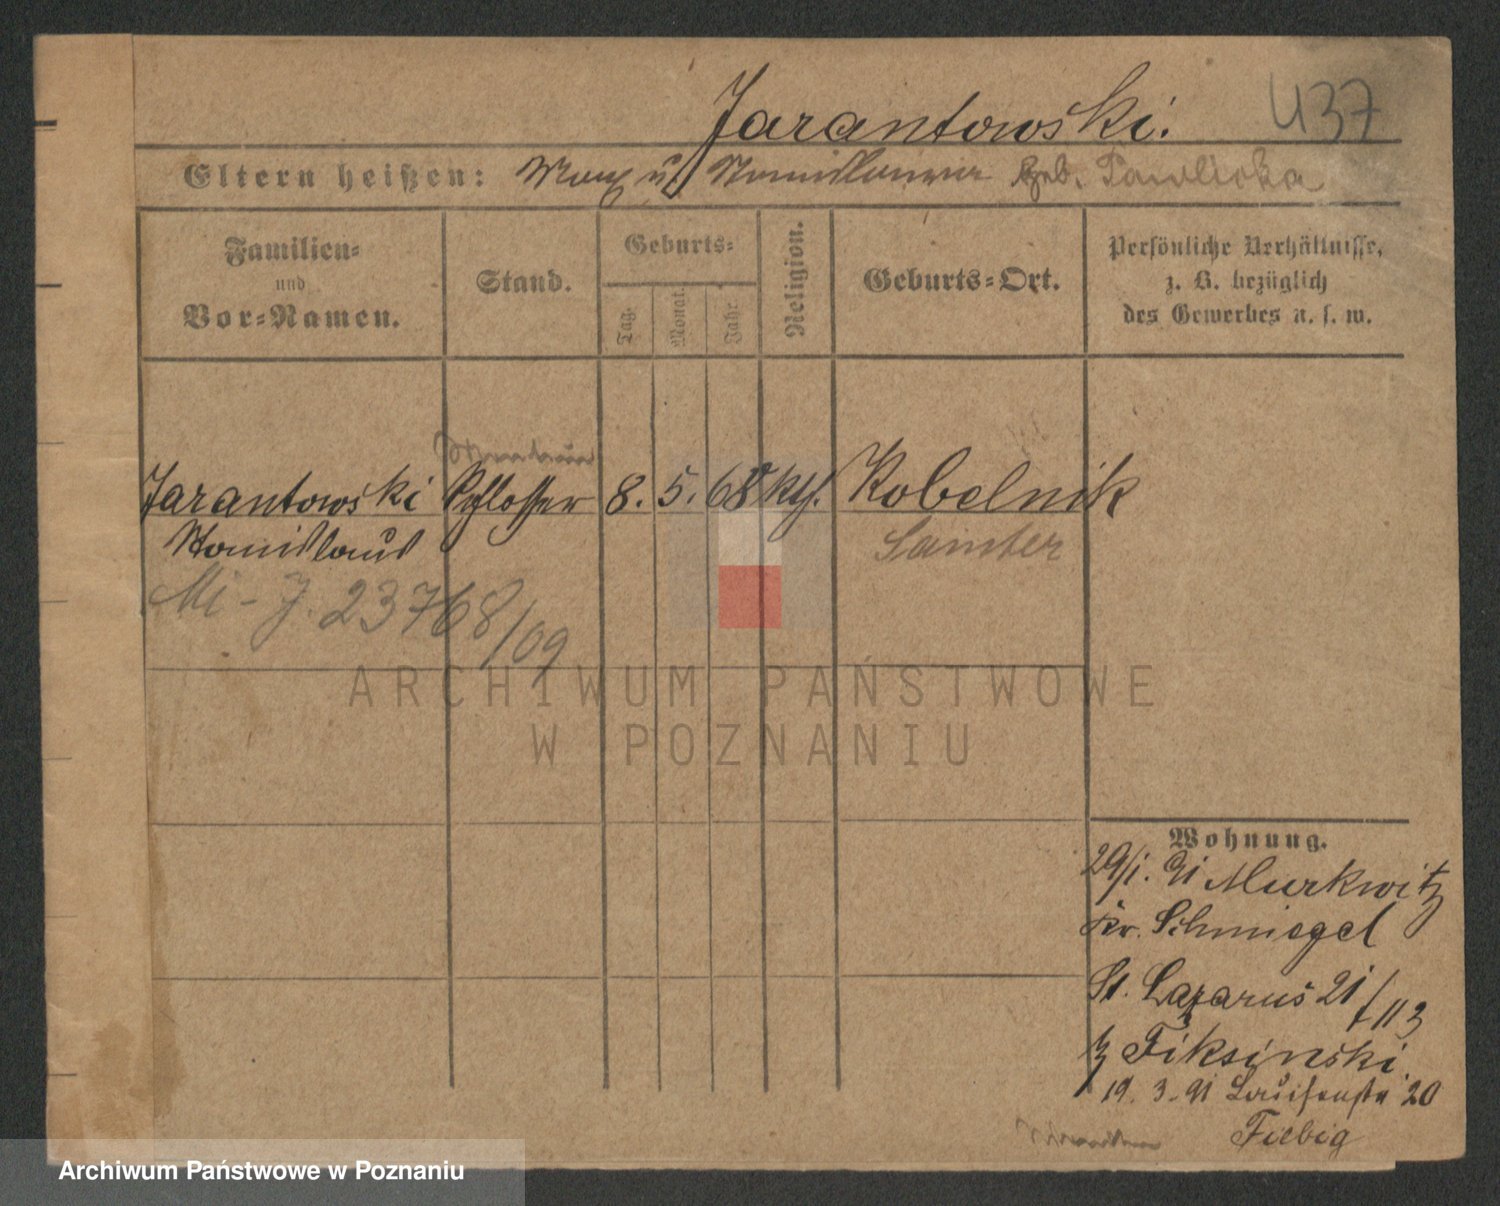 Jarantowski. 437
Eltern heißen: Max u Stanislawa geb. Pawlicka
Familien-
und
Vor-Namen.
Stand.
Geburts-
Tag.
Monat.
Jahr
Religion.
Geburts-Ort.
Persönliche Verhältnisse,
z. B. bezüglich
des Gewerbes u. s. w.
Jarantowski Schlosser 8. 5. 68 kth. Kobelnik
Stanislaus Samter
Mi-J. 23768/09
ARCHIWUM PAŃSTWOWE
W POZNANIU
Wohnung.
29/1. 91 Murkwitz
Kr. Schmiegel
St. Lazarus 21/113
b Fiksinski.
19. 3. 91 Louisenstr 20
Fiebig
Archiwum Państwowe w Poznaniu